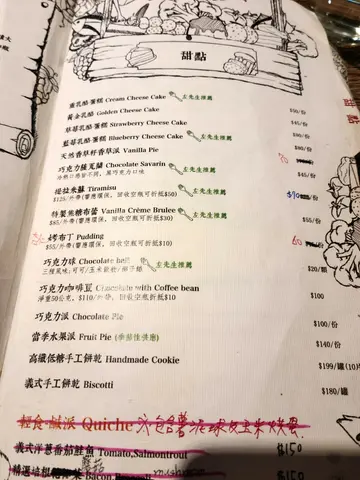 甜點
重乳酪蛋糕 Cream Cheese Cake 左先生推薦 $50/份
黃金乳酪 Golden Cheese Cake $80/份
草莓乳酪蛋糕 Strawberry Cheese Cake $45/份
藍莓乳酪蛋糕 Blueberry Cheese Cake 左先生推薦 $80/份
天然香草籽香草派 Vanilla Pie $80/份
巧克力薩芙蘭 Chocolate Savarin 左先生推薦 $45/份
冷熱口感皆不同，黑巧克力口味
提拉米蘇 Tiramisu /份
$125/外帶(響應環保，回收空瓶可折抵$50)
特製焦糖布蕾 Vanilla Crème Brulee 左先生推薦 $55/份
$85/外帶(響應環保，回收空瓶可折抵$30)
布丁 Pudding 60 /份
$55/外帶(響應環保，回收空瓶可折抵$10)
巧克力球 Chocolate ball 左先生推薦 $20/顆
三種風味:可可/玉米穀粒/
巧克力咖啡豆 Chocolate with Coffee bean $100
淨重50公克，$110/外帶，回收空瓶折抵$10
巧克力派 Chocolate Pie $100/份
當季水果派 Fruit Pie (季節性供應) $140/份
高纖低糖手工餅乾 Handmade Cookie $199/罐(10片
義式手工餅乾 Biscotti $180/罐
輕食-鹹派 Quiche
義式洋蔥番茄鮭魚 Tomato,Salmontrout $150
精選培根 Bacon $150